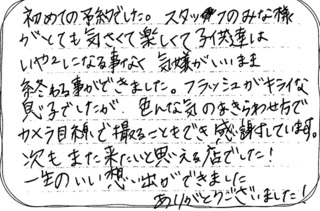 初めての予約でした。スタッフのみな様
がとても気さくで楽しくて子供達は
いやいやになる事なく気嫌がいいまま
終わる事ができました。フラッシュがキライな
息子でしたが、色んな気のまぎらわせ方で
カメラ目線で撮ることもでき感謝しています。
次もまた来たいと思える店でした!
一生のいい想い出ができました
ありがとうございました!